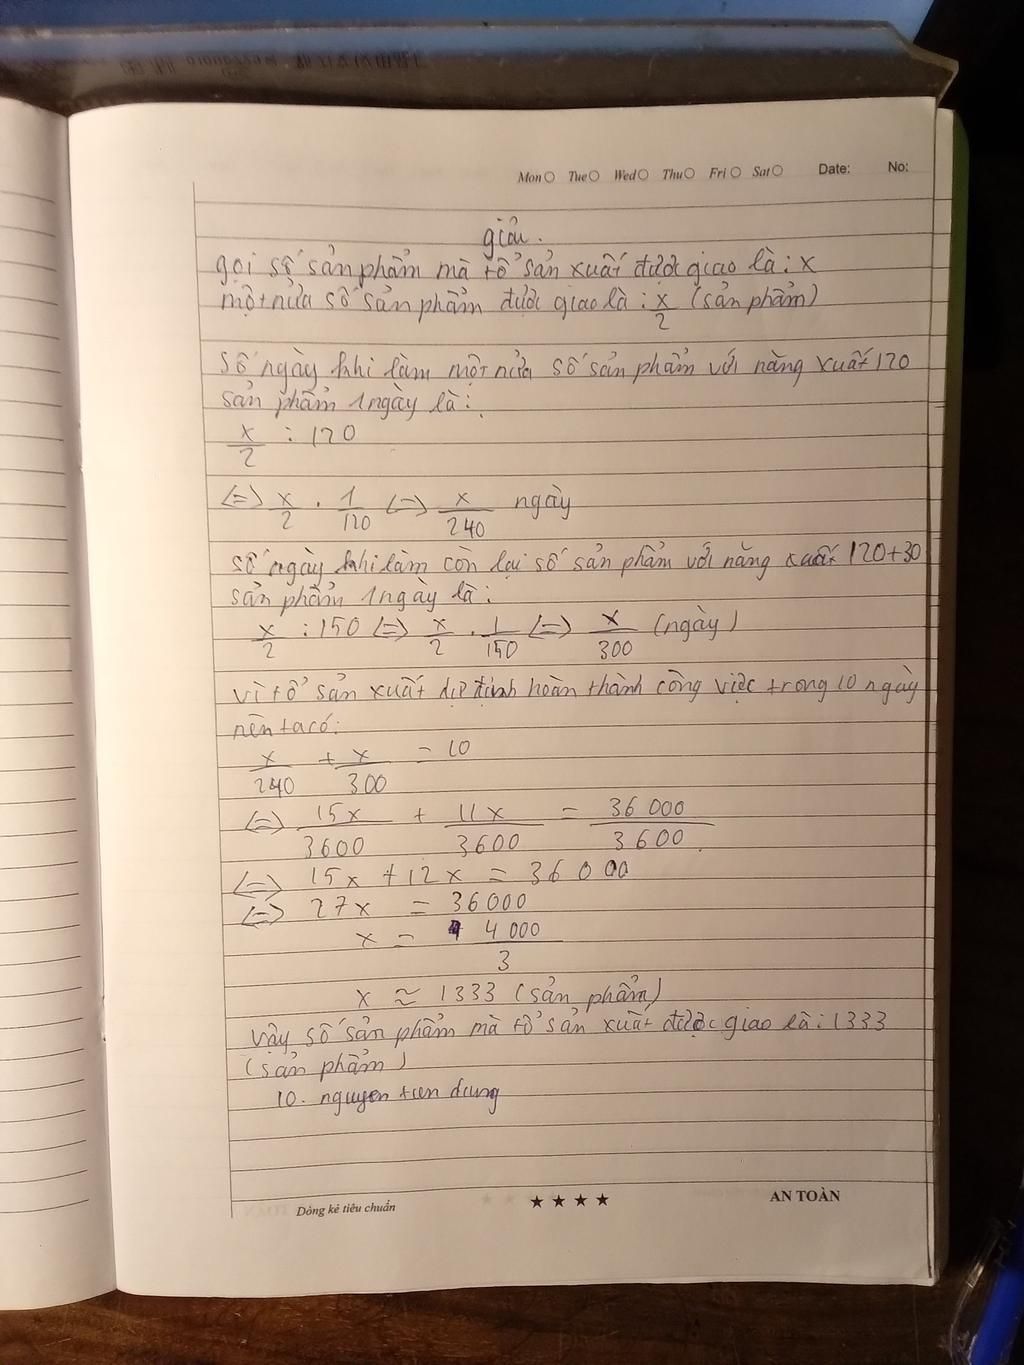 Mon Tue Wed Thu Fri Sat Date: No:
giải.
gọi số sản phẩm mà tổ sản xuất được giao là : x
một nửa số sản phẩm được giao là : x/2 (sản phẩm)
Số ngày khi làm một nửa số sản phẩm với năng xuất 120
sản phẩm 1 ngày là :
x/2 : 120
<=> x/2 . 1/120 <=> x/240 ngày
số ngày khi làm còn lại số sản phẩm với năng xuất 120+30
sản phẩm 1 ngày là :
x/2 : 150 <=> x/2 . 1/150 <=> x/300 (ngày)
vì tổ sản xuất dự định hoàn thành công việc trong 10 ngày
nên ta có:
x/240 + x/300 = 10
<=> 15x/3600 + 12x/3600 = 36 000/3600
<=> 15x + 12x = 36 000
<=> 27x = 36000
x = 4 000/3
x ≈ 1333 (sản phẩm)
Vậy số sản phẩm mà tổ sản xuất được giao là : 1333
(sản phẩm)
10. nguyen
Dòng kẻ tiêu chuẩn ★ ★ ★ ★ AN TOÀN